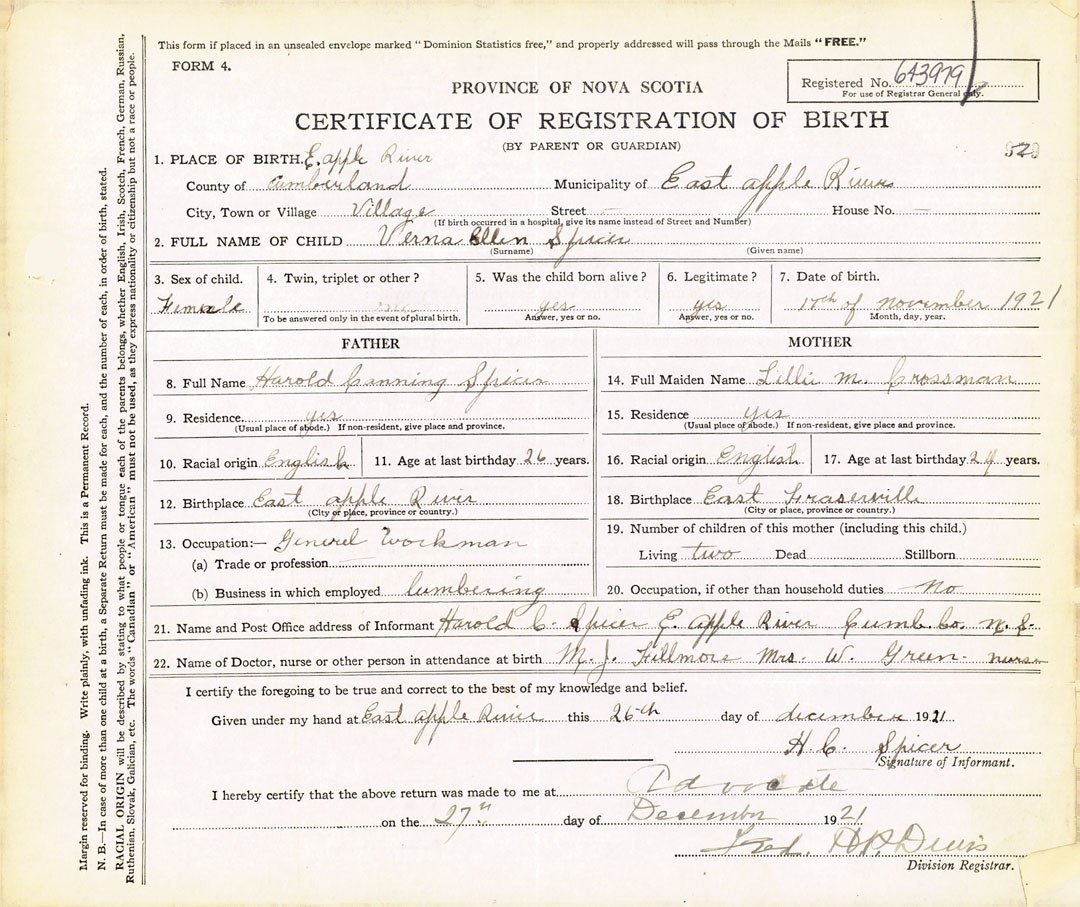 This form if placed in an unsealed envelope marked "Dominion Statistics free," and properly addressed will pass through the Mails "FREE."
FORM 4.
Registered No. 643979
For use of Registrar General only.
PROVINCE OF NOVA SCOTIA
CERTIFICATE OF REGISTRATION OF BIRTH
(BY PARENT OR GUARDIAN)
1. PLACE OF BIRTH. E. apple River
County of Cumberland Municipality of East apple River
City, Town or Village Village Street — House No. —
(If birth occurred in a hospital, give its name instead of Street and Number)
2. FULL NAME OF CHILD Verna Ellen Spicer
(Surname) (Given name)
3. Sex of child. 4. Twin, triplet or other? 5. Was the child born alive? 6. Legitimate? 7. Date of birth.
Female yes yes 17th of november 1921
To be answered only in the event of plural birth. Answer, yes or no. Answer, yes or no. Month, day, year.
FATHER
8. Full Name Harold Canning Spicer
9. Residence. yes
(Usual place of abode.) If non-resident, give place and province.
10. Racial origin English 11. Age at last birthday 26 years.
12. Birthplace East apple River
(City or place, province or country.)
13. Occupation:— Generel workman
(a) Trade or profession
(b) Business in which employed lumbering
MOTHER
14. Full Maiden Name Lillie M. Crossman
15. Residence yes
(Usual place of abode.) If non-resident, give place and province.
16. Racial origin English 17. Age at last birthday 24 years.
18. Birthplace East Fraserville
(City or place, province or country.)
19. Number of children of this mother (including this child.)
Living two Dead Stillborn
20. Occupation, if other than household duties no
21. Name and Post Office address of Informant Harold C. Spicer E. apple River Cumb. Co. N. S.
22. Name of Doctor, nurse or other person in attendance at birth M. J. Fillmore Mrs. W. Green. nurse
I certify the foregoing to be true and correct to the best of my knowledge and belief.
Given under my hand at East apple River this 26th day of december 1921
H. C. Spicer
Signature of Informant.
I hereby certify that the above return was made to me at Advocate
on the 27th day of December 1921
Fred. Division Registrar.
Margin reserved for binding. Write plainly, with unfading ink. This is a Permanent Record.
N. B.—In case of more than one child at a birth, a Separate Return must be made for each, and the number of each, in order of birth, stated.
RACIAL ORIGIN will be described by stating to what people or tongue each of the parents belongs, whether English, Irish, Scotch, French, German, Russian,
Ruthenian, Slovak, Galician, etc. The words "Canadian" or "American" must not be used, as they express nationality or citizenship but not a race or people.